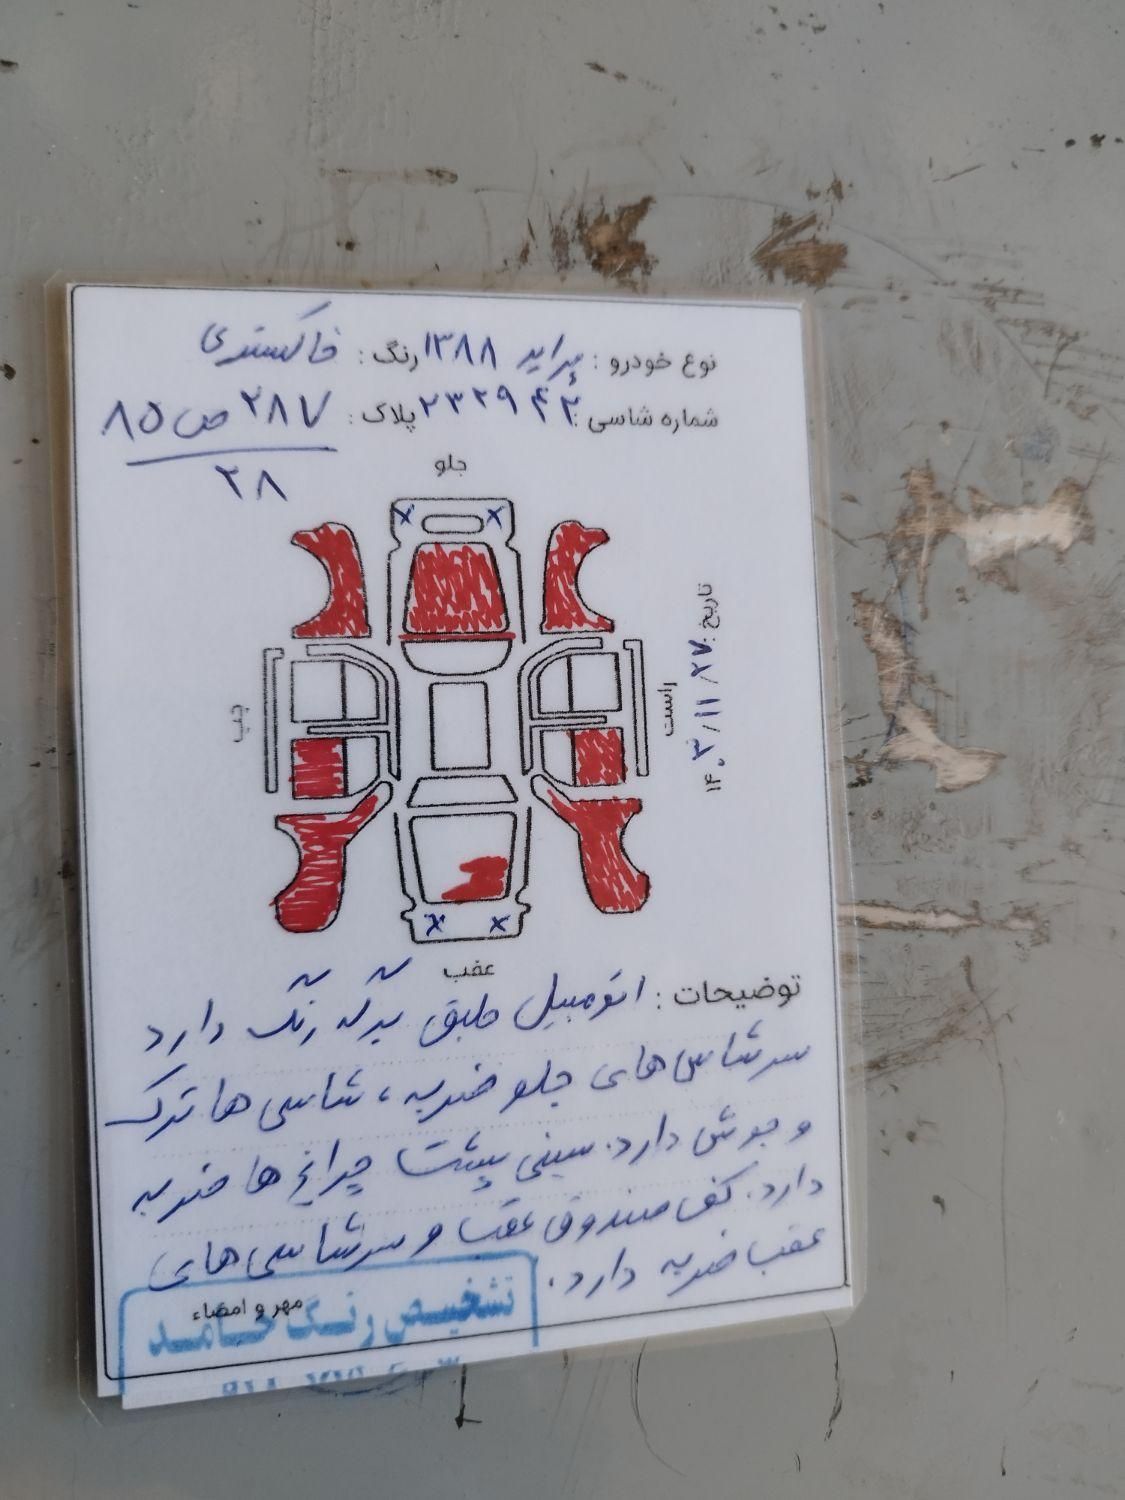 نوع خودرو : پراید ۱۳۸۸ رنگ : خاکستری
شماره شاسی : ۲۳۲۹۴۲ پلاک : ۲۸۷ ص ۸۵
۲۸
جلو
چپ
راست
تاریخ: ۱۴۰۳/۱۱/۲۷
عقب
توضیحات : اتومبیل طبق برگه رنگ دارد
سرشاسی های جلو ضربه ، شاسی ها ترک
و جوش دارد. سینی پشت چراغ ها ضربه
دارد. کف صندوق عقب و سرشاسی های
عقب ضربه دارد.
مهر و امضاء
تشخیص رنگ حامد